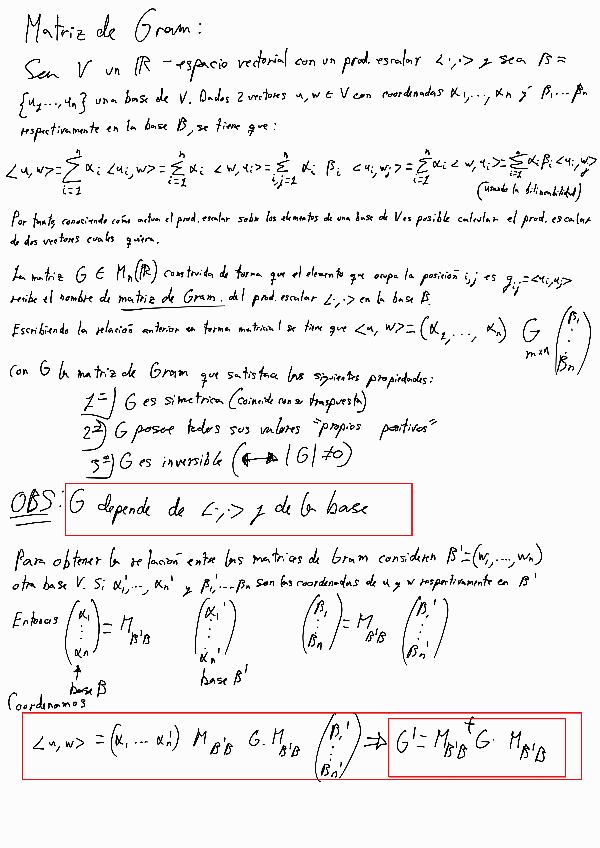 Matriz de Gram:
Sea V un ℝ-espacio vectorial con un prod. escalar <·,·> y sea B =
{u₁,...,uₙ} una base de V. Dados 2 vectores u, w ∈ V con coordenadas α₁,...,αₙ y β₁...βₙ
respectivamente en la base B, se tiene que:
<u,w> = ∑ᵢ₌₁ⁿ αᵢ <uᵢ,w> = ∑ᵢ₌₁ⁿ αᵢ <w,uᵢ> = ∑ᵢ,ⱼ₌₁ⁿ αᵢ βᵢ <uᵢ,wⱼ> = ∑ᵢ₌₁ⁿ αᵢ <w,uᵢ> = ∑ᵢ₌₁ⁿ αᵢβᵢ <uᵢ,wⱼ>
(usando la bilinealidad)
Por tanto, conociendo como actua el prod. escalar sobre los elementos de una base de V es posible calcular el prod. escalar
de dos vectores cuales quiera.
La matriz G ∈ Mₙ(ℝ) construida de forma que el elemento que ocupa la posición i,j es gᵢⱼ = <uᵢ,uⱼ>
recibe el nombre de matriz de Gram. del prod. escalar <·,·> en la base B.
Escribiendo la relación anterior en forma matricial se tiene que <u,w> = (α₁,..., αₙ) G (β₁ ⋮ βₙ)
con G la matriz de Gram que satisface las siguientes propiedades:
1ª) G es simetrica (coincide con su traspuesta)
2ª) G posee todos sus valores "propios positivos"
3ª) G es inversible (↔ |G| ≠ 0)
OBS: G depende de <·,·> y de la base
Para obtener la relación entre las matrices de Gram consideren B' = (w₁,...,wₙ)
otra base V. Si α₁',..., αₙ' y β₁',...βₙ son las coordenadas de u y w respectivamente en B'
Entonces (α₁ ⋮ αₙ) = M_B'B (α₁' ⋮ αₙ') (β₁ ⋮ βₙ) = M_B'B (β₁' ⋮ βₙ')
base B base B'
Coordenamos
<u,w> = (α₁ ... αₙ') M_B'B G. M_B'B (β₁' ⋮ βₙ') ⇒ G' = M_B'Bᵗ G · M_B'B